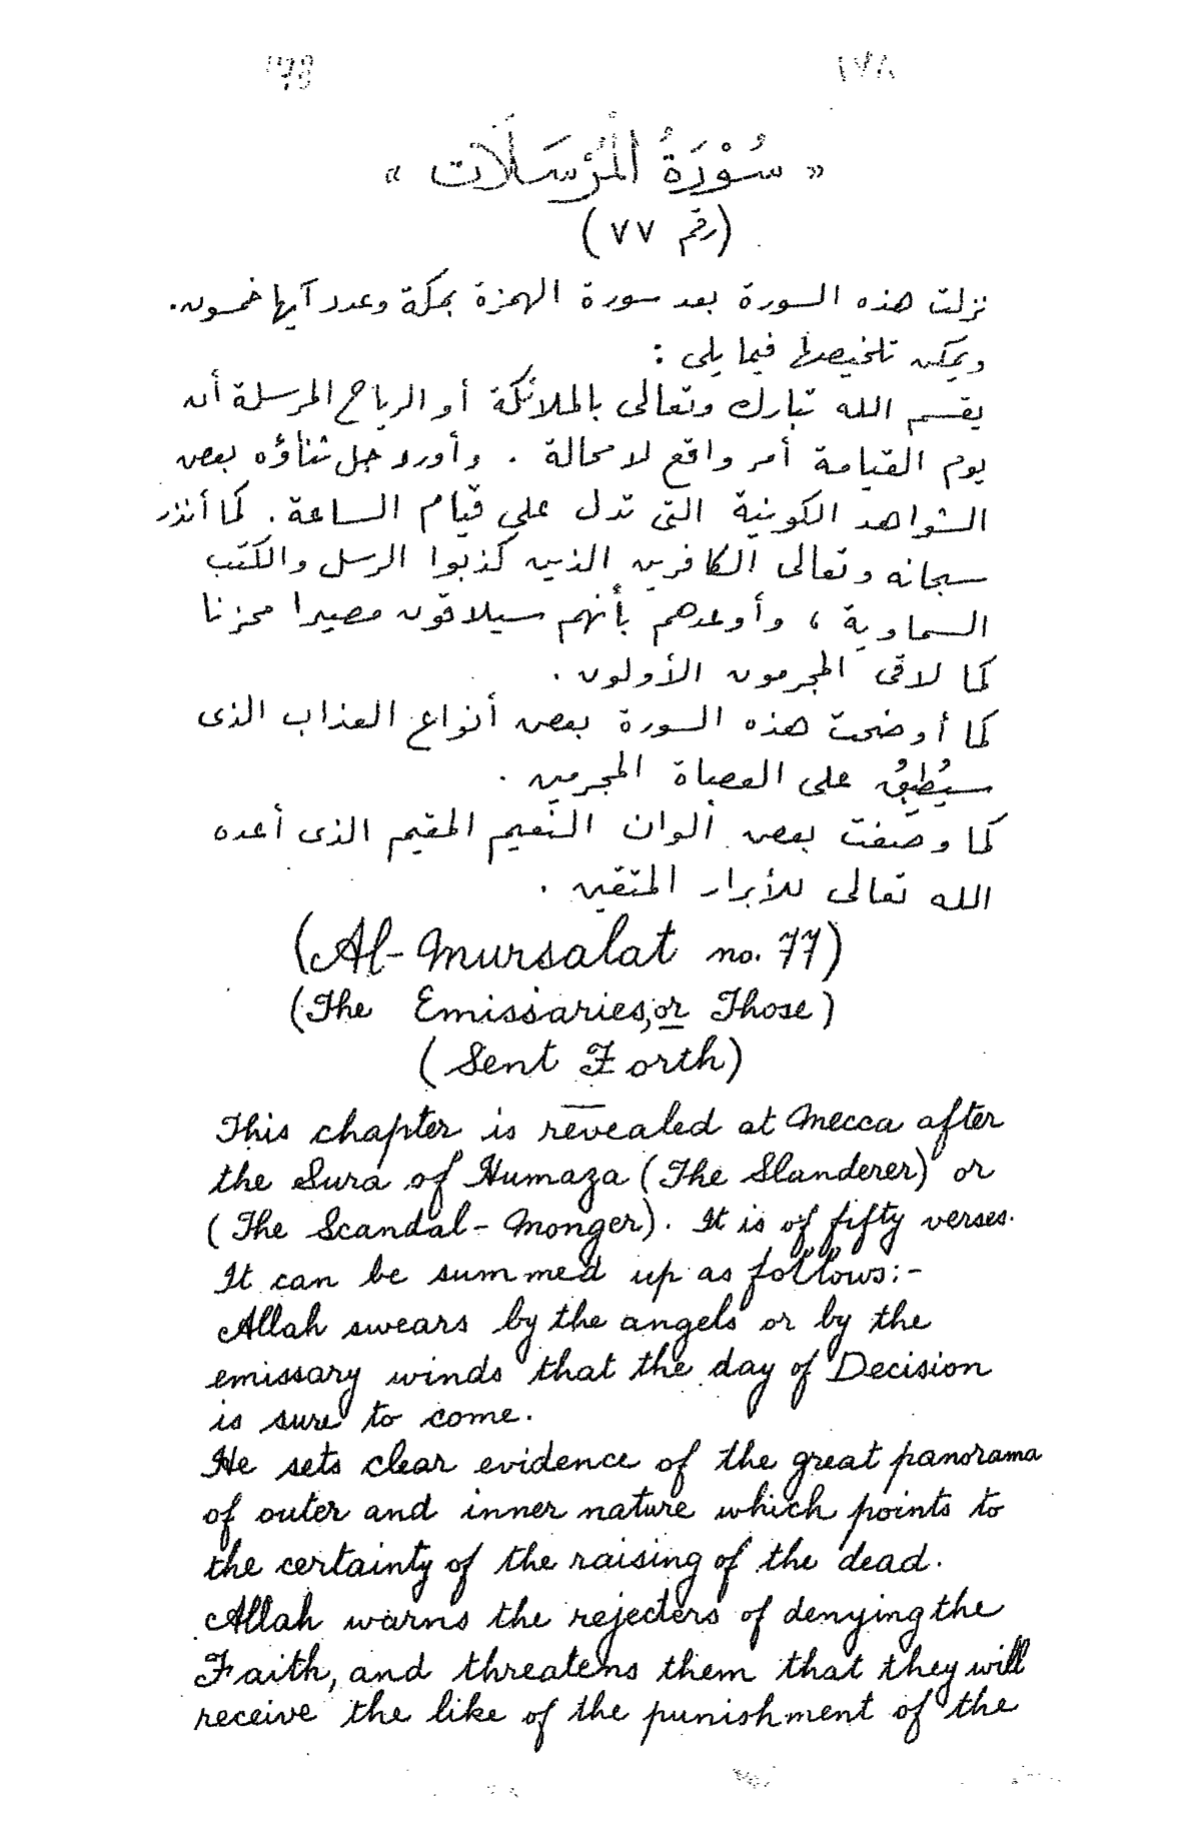 178 ١٧٨
« سُوْرَةُ الْمُرْسَلَات »
(رقم ٧٧)
نزلت هذه السورة بعد سورة الهمزة بمكة وعدد آيها خمسون.
ويمكن تلخيصها فيما يلى :
يقسم الله تبارك وتعالى بالملائكة أو الرياح المرسلة أن
يوم القيامة أمر واقع لا محالة . وأورد جل ثناؤه بعض
الشواهد الكونية التى تدل على قيام الساعة . كما أنذر
سبحانه وتعالى الكافرين الذين كذبوا الرسل والكتب
السماوية ، وأوعدهم بأنهم سيلاقون مصيرا محزنا
كما لاقى المجرمون الأولون .
كما أوضحت هذه السورة بعض أنواع العذاب الذى
سيُطبقُ على العصاة المجرمين .
كما وصفت بعض ألوان النعيم المقيم الذى أعده
الله تعالى للأبرار المتقين .
(Al-Mursalat no. 77)
(The Emissaries, or Those)
(Sent Forth)
This chapter is revealed at Mecca after
the Sura of Humaza (The Slanderer) or
(The Scandal-Monger). It is of fifty verses.
It can be summed up as follows:-
Allah swears by the angels or by the
emissary winds that the day of Decision
is sure to come.
He sets clear evidence of the great panorama
of outer and inner nature which points to
the certainty of the raising of the dead.
Allah warns the rejecters of denying the
Faith, and threatens them that they will
receive the like of the punishment of the